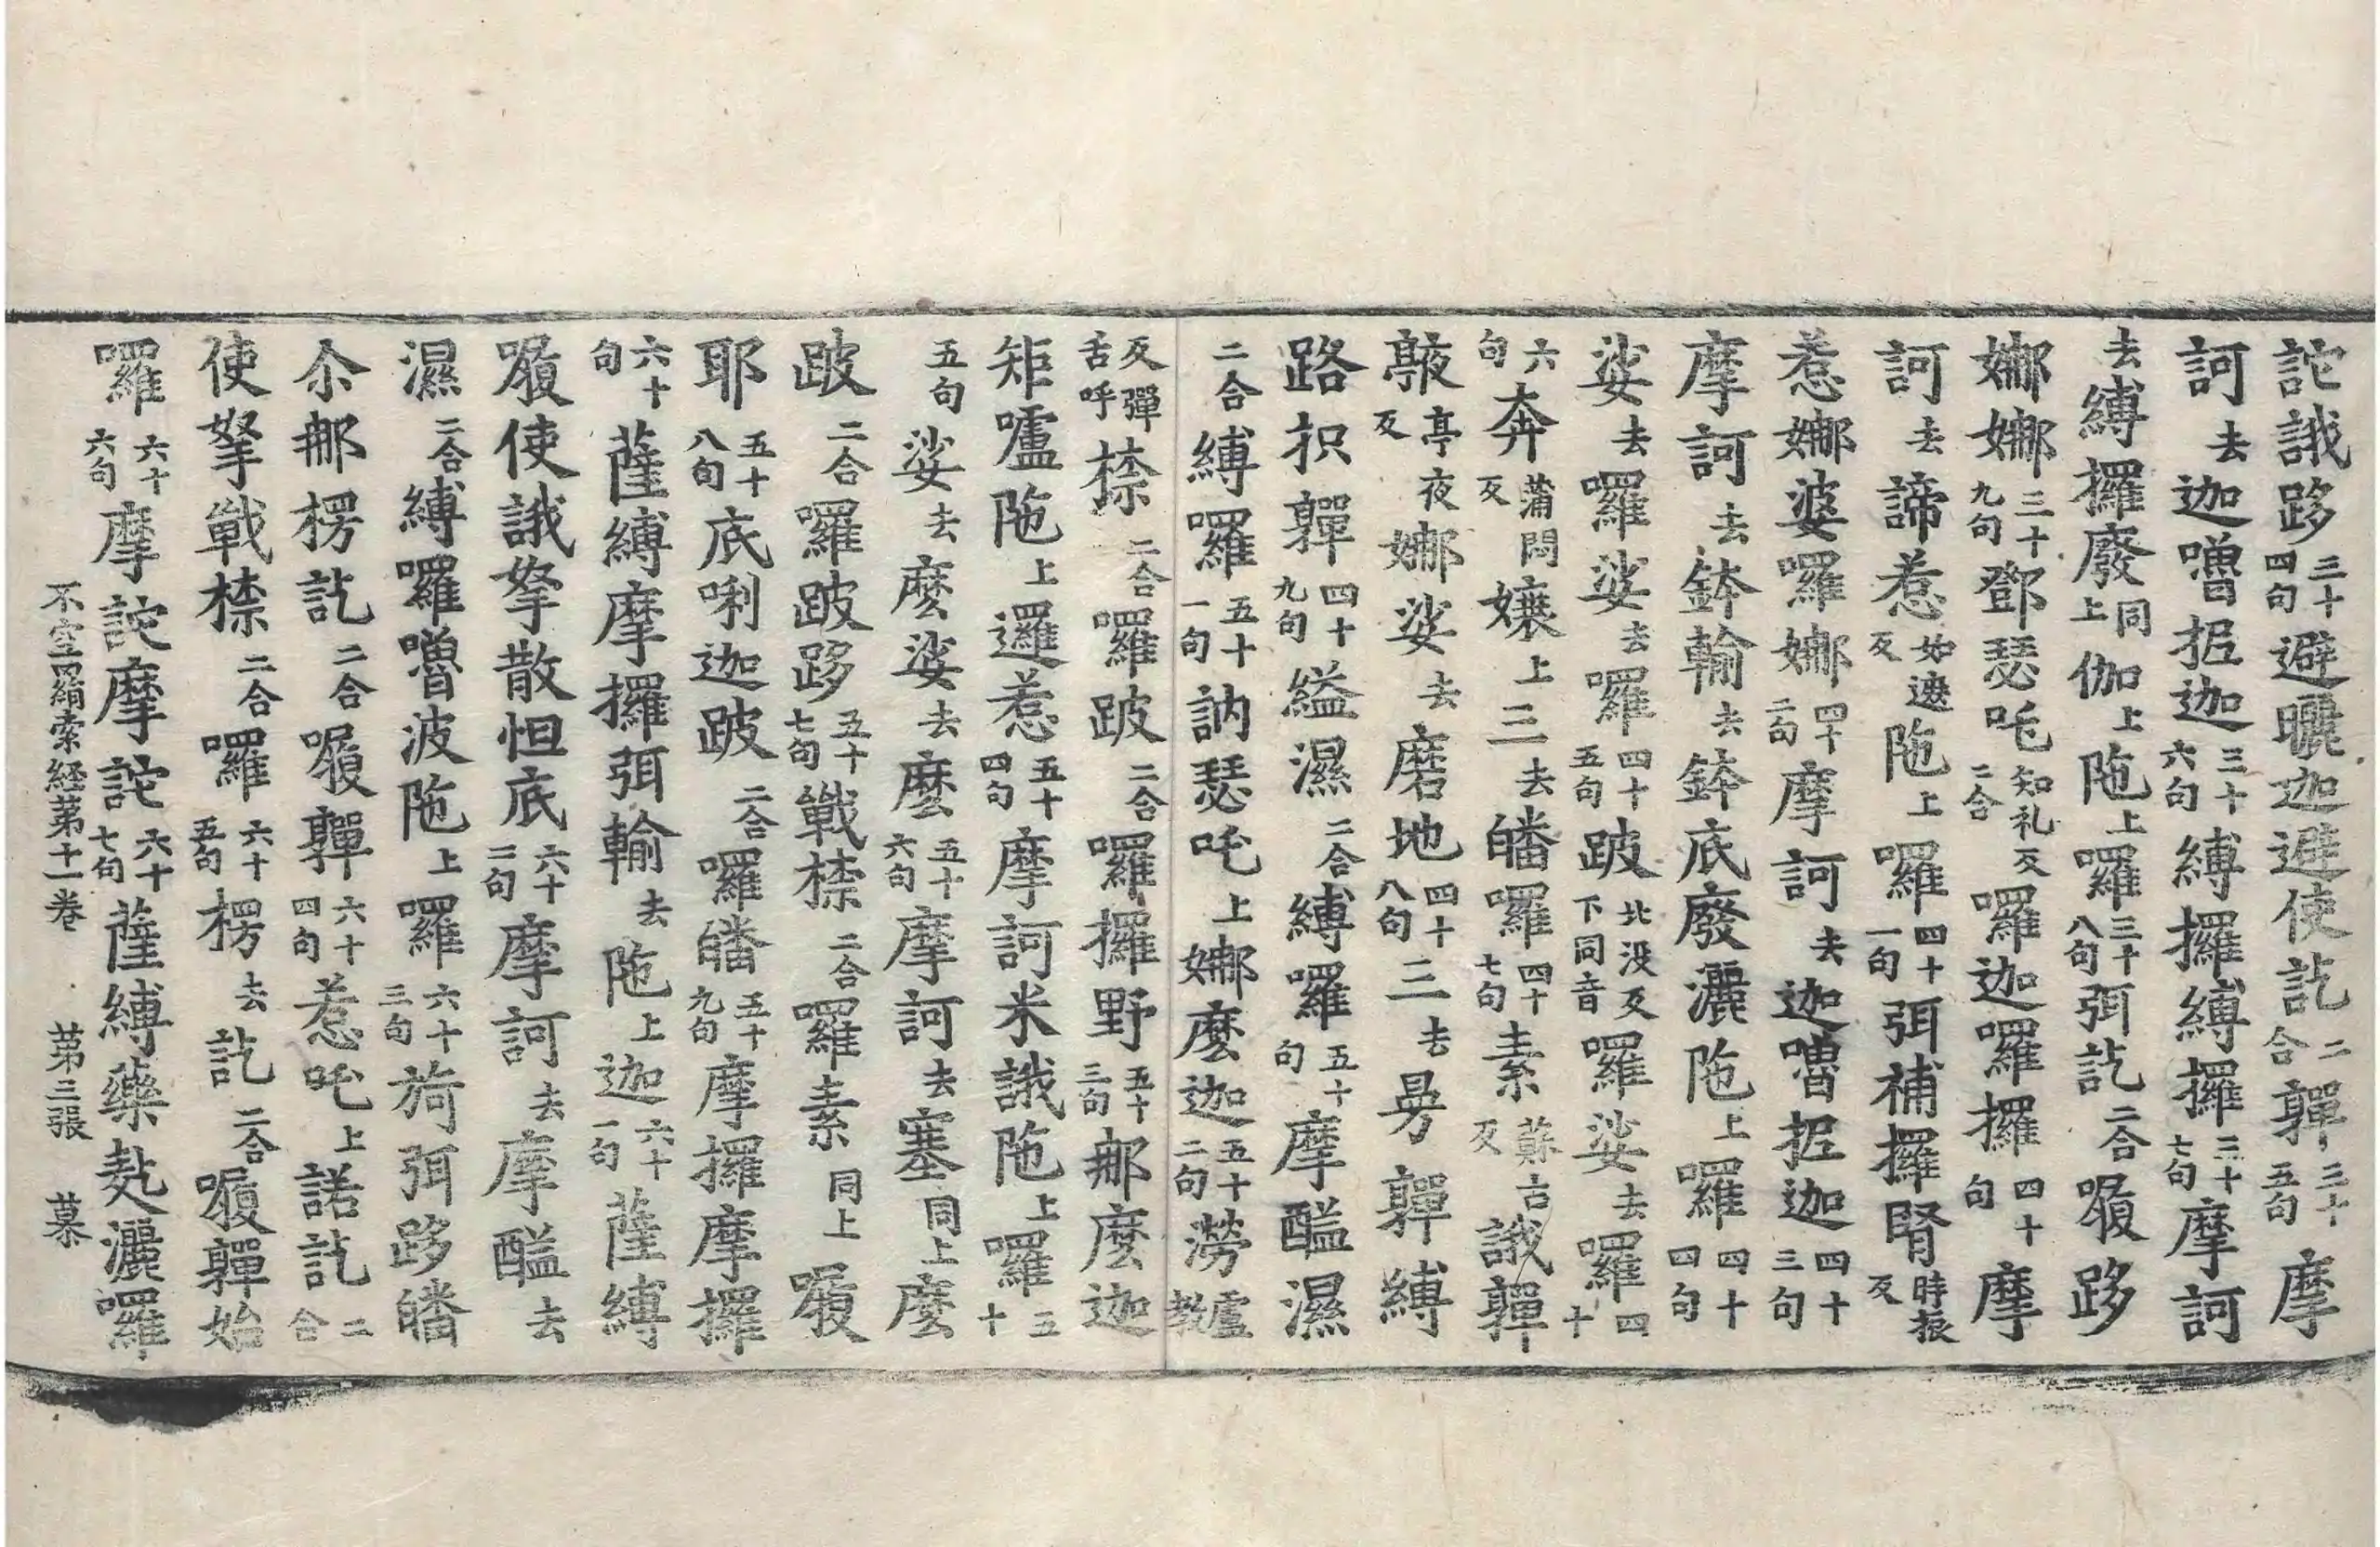 詑誐跢三十四句避曬迦避使訖二合嚲三十五句摩
訶去迦嚕抳迦三十六句縛攞縛攞三十七句摩訶
去縛攞廢同上伽上陁上囉三十八句弭訖二合𡅘跢
娜娜三十九句鄧瑟吒知礼反二合囉迦囉攞四十句摩
訶去諦惹如遮反陁上囉四十一句弭補攞腎時振反
惹娜婆囉娜四十二句摩訶去迦嚕抳迦四十三句
摩訶去鉢輸去鉢底廢灑陁上囉四十四句
娑去囉娑去囉四十五句跛北没反下同音囉娑去囉四十
六句奔蒲悶反孃上三去皤囉四十七句素蘇古反誐嚲
𢾊亭夜反娜娑去磨地四十八句三去曼嚲縛
路抧嚲四十九句縊濕二合縛囉五十句摩醯濕
二合縛囉五十一句訥瑟吒上娜麽迦五十二句澇盧教
反彈舌呼㮈二合囉跛二合囉攞野五十三句那麽迦
矩嚧陁上邏惹五十四句摩訶米誐陁上囉五十
五句娑去麽娑去麽五十六句摩訶去塞同上麽
跛二合囉跛跢五十七句戰㮈二合囉素同上𡅘
耶五十八句底唎迦跛二合囉皤五十九句摩攞摩攞
六十句薩縛摩攞弭輸去陁上迦六十一句薩縛
𡅘使誐拏散怛底六十二句摩訶去摩醯去
濕二合縛囉嚕波陁上囉六十三句旖弭跢皤
尒那楞訖二合𡅘嚲六十四句惹吒上諾訖二合
使拏戰㮈二合囉六十五句楞去訖二合𡅘嚲始
囉六十六句摩詑摩詑六十七句薩縛藥𪍿灑囉
不空罥索経苐十一卷 苐三張 慕